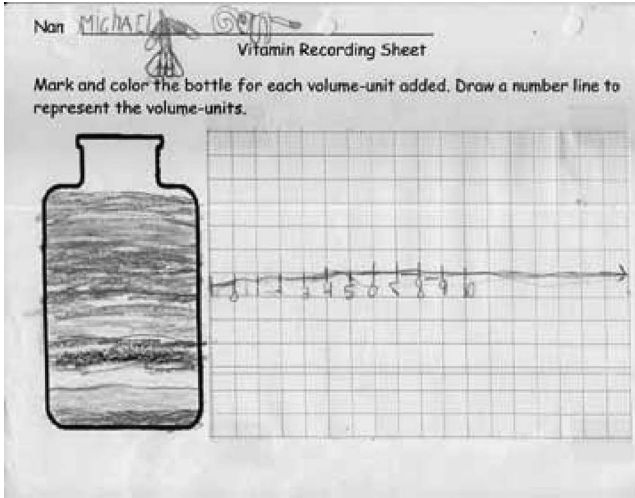 Nan MIChAEL
Vitamin Recording Sheet
Mark and color the bottle for each volume-unit added. Draw a number line to
represent the volume-units.
0 1 2 3 4 5 6 7 8 9 10